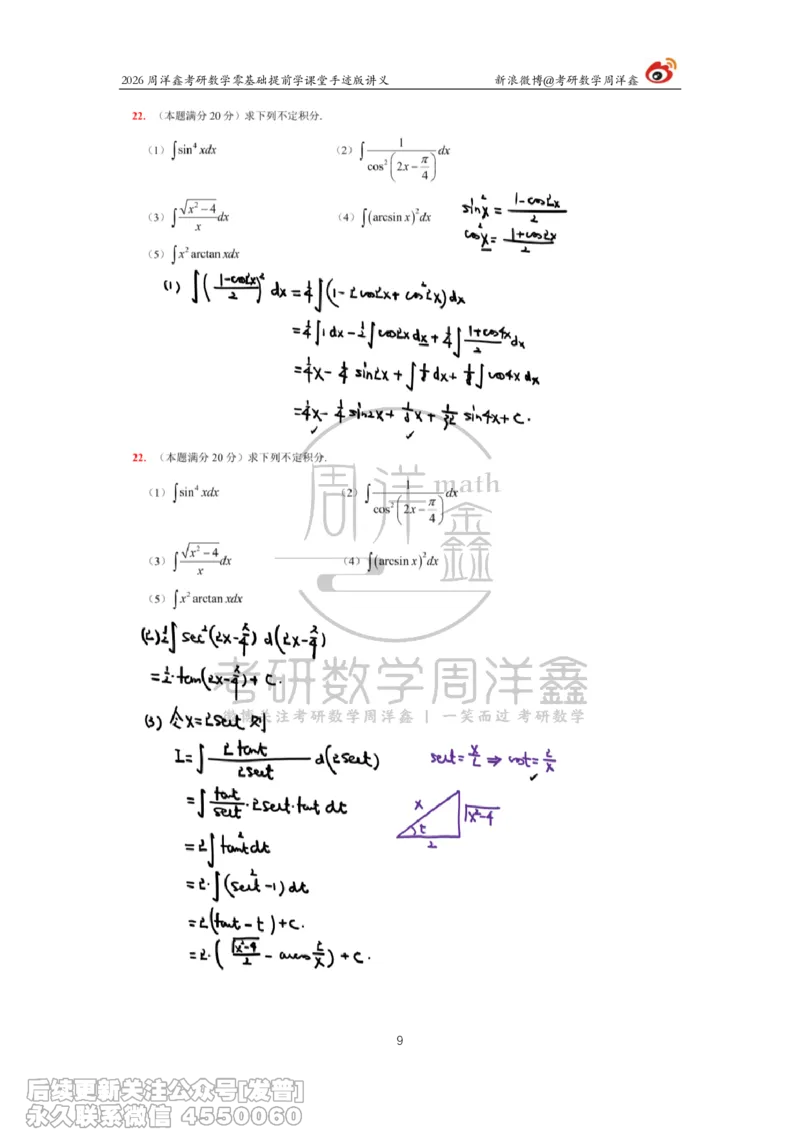 2026 周洋鑫考研数学零基础提前学课堂手迹版讲义 新浪微博@考研数学周洋鑫
22. （本题满分 20 分）求下列不定积分.
（1）∫sin⁴ xdx （2）∫ 1/cos²(2x − π/4) dx
（3）∫ √(x²−4)/x dx （4）∫(arcsin x)² dx
sin²x = (1−cos2x)/2
cos²x = (1+cos2x)/2
（5）∫x² arctan xdx
(1) ∫((1−cos2x)/2)² dx = 1/4 ∫(1−2cos2x+cos²2x)dx
= 1/4 ∫1dx − 1/2 ∫cos2xdx + 1/4 ∫ (1+cos4x)/2 dx
= 1/4 x − 1/4 sin2x + ∫1/8 dx + 1/8 ∫cos4x dx
= 1/4 x − 1/4 sin2x + 1/8 x + 1/32 sin4x + C.
22. （本题满分 20 分）求下列不定积分.
（1）∫sin⁴ xdx （2）∫ 1/cos²(2x − π/4) dx
（3）∫ √(x²−4)/x dx （4）∫(arcsin x)² dx
（5）∫x² arctan xdx
周洋鑫 math
(2) 1/2 ∫sec²(2x−π/4) d(2x−π/4)
= 1/2 tan(2x−π/4) + C.
考研数学周洋鑫
微博关注考研数学周洋鑫 | 一笑而过 考研数学
(3) 令x=2sect 则
I=∫ 2tant/2sect d(2sect)
sect = x/2 ⇒ cost = 2/x
= ∫ tant/sect · 2sect·tant dt
x t 2 √(x²−4)
= 2∫tan²t dt
= 2·∫(sec²t −1)dt
= 2(tant − t)+C.
= 2·(√(x²−4)/2 − arccos 2/x) + C.
9
后续更新关注公众号[发普]
永久联系微信 4550060